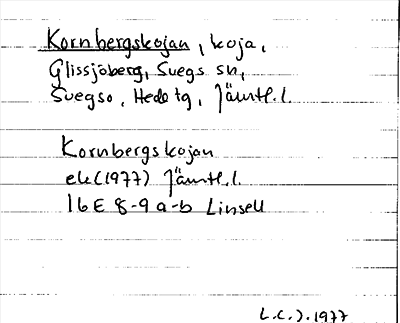 Kornbergskojan, koja,
Glissjöberg, Svegs sn,
Svegso, Hede tg, Jämtl. l.
Kornbergskojan
ek (1977) Jämtl. l.
16E 8-9 a-b Linsell
L.C.J. 1977